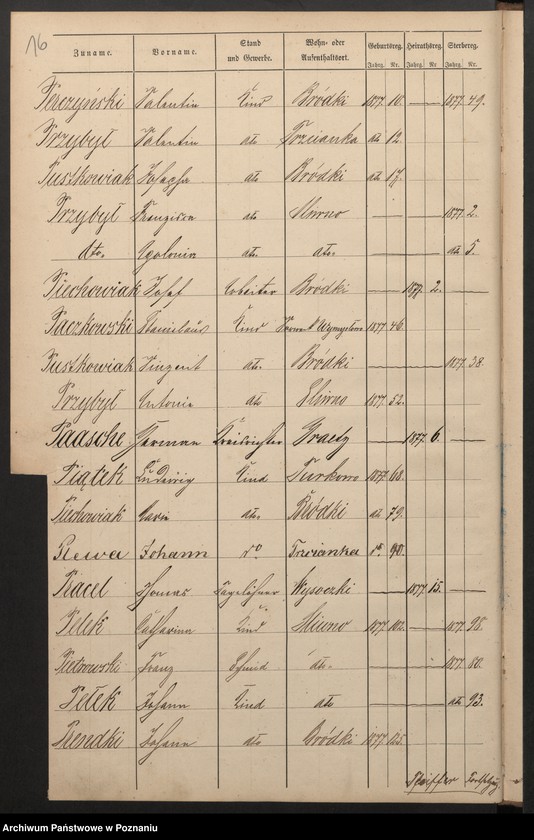 16
Zuname. Vorname. Stand und Gewerbe. Wohn- oder Aufenthaltsort. Geburtsreg. Heirathsreg. Sterbereg.
Jahrg. Nr. Jahrg. Nr. Jahrg. Nr.
Perczyński Valentin Kind Bródki 1877. 10. 1877. 49.
Przybył Valentin dto Trzcianka dto 12.
Puszkowiak Josepha dto Bródki dto 17.
Przybył Franzisca dto 1877. 2.
dto. Apolonia dto. dto. dto 5.
Piechowiak Josef Arbeiter Bródki 1877. 2.
Paczkowski Stanislaus Kind 1877 46.
Puszkowiak Vinzent dto. Bródki 1877. 38.
Przybył Antonie dto 1877. 52.
Paasche Herman Kreisrichter Graetz 1877. 6.
Piątek Ludwig Kind Turkowo 1877. 68.
Piechowiak dto. Bródki dto 79.
Plewa Johann do Trzcianka do 90.
Pracel Thomas Tagelöhner Wysoczki 1877. 15.
Pełek Catharina Kind 1877. 102. 1877. 98.
Pietrowski Franz dto. 1877. 80.
Pełek Johann Kind dto dto 93.
Prendki Johann dto Bródki 1877. 125.
Pfeiffer Fortsetzung
Archiwum Państwowe w Poznaniu